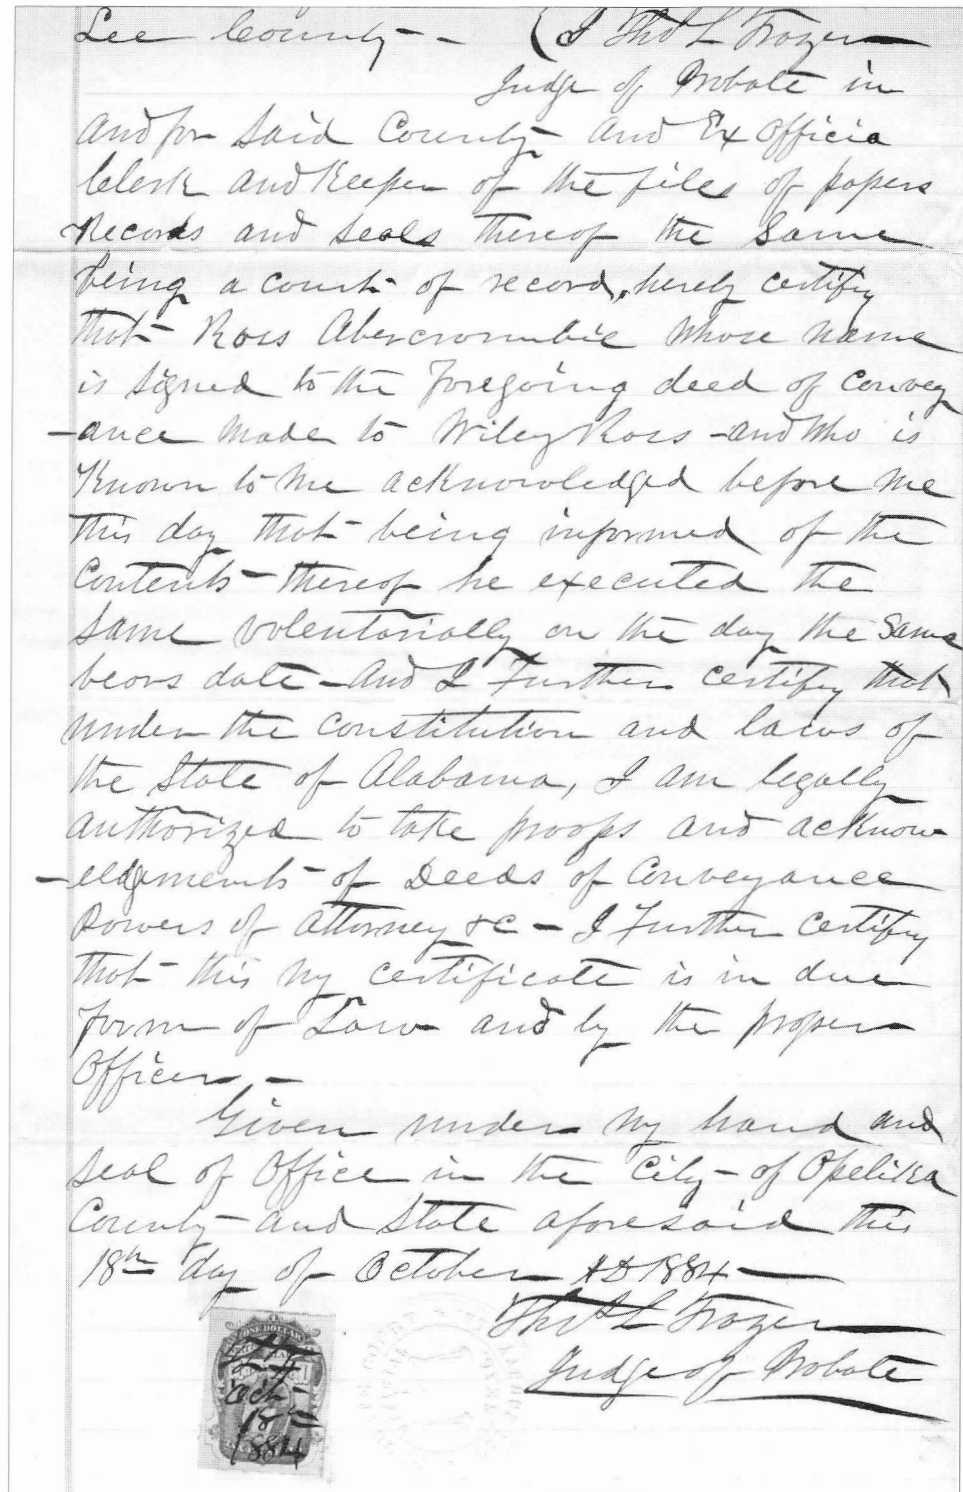 Lee County - - ( I Thos L Frazer
Judge of Probate in
and for said County and Ex Officio
Clerk and Keeper of the files of papers
Records and seals thereof the same
being a court of record, hereby certify
that Ross Abercrombie whose name
is signed to the foregoing deed of convey
-ance made to Wiley Ross - and who is
Known to me acknowledged before me
this day that being informed of the
Contents thereof he executed the
same volentarially on the day the same
bears date - and I Further certify that
under the constitution and laws of
the State of Alabama, I am legally
authorized to take proofs and acknow-
-eldgements of Deeds of Conveyance
Powers of attorney &c - I Further certify
that this my certificate is in due
form of Law and by the proper
Officer -
Given under my hand and
seal of Office in the City of Opelika
County and State aforesaid this
18th day of October AD 1884
Thos L Frazer
Judge of Probate
ONE DOLLAR
Oct
18th
1884